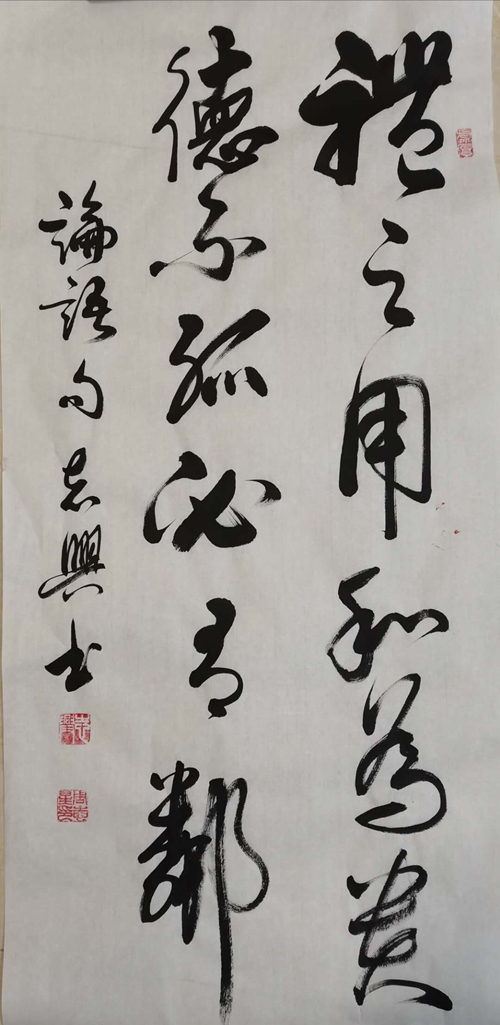 禮之用和為貴
德不孤必有鄰
論語句志興書